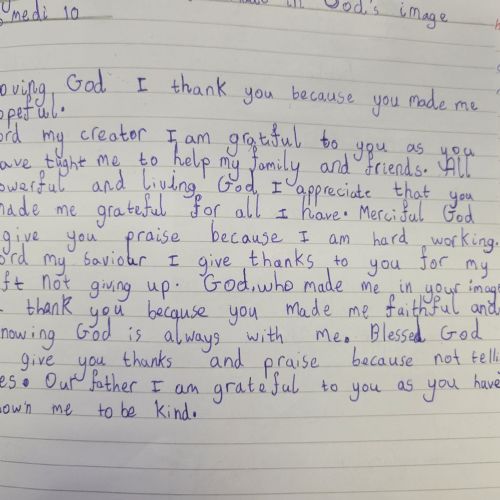 in God's image
medi 10
oving God I thank you because you made me
opeful.
ord my creator I am gratiful to you as you
ave tught me to help my family and friends. All
owerful and living God I appreciate that you
made me grateful for all I have. Merciful God
give you praise because I am hard working.
ord my saviour I give thanks to you for my
ift not giving up. God, who made me in your imag
thank you because you made me faithful and
nowing God is always with me. Blessed God
give you thanks and praise because not telli
es. Our father I am grateful to you as you have
own me to be kind.